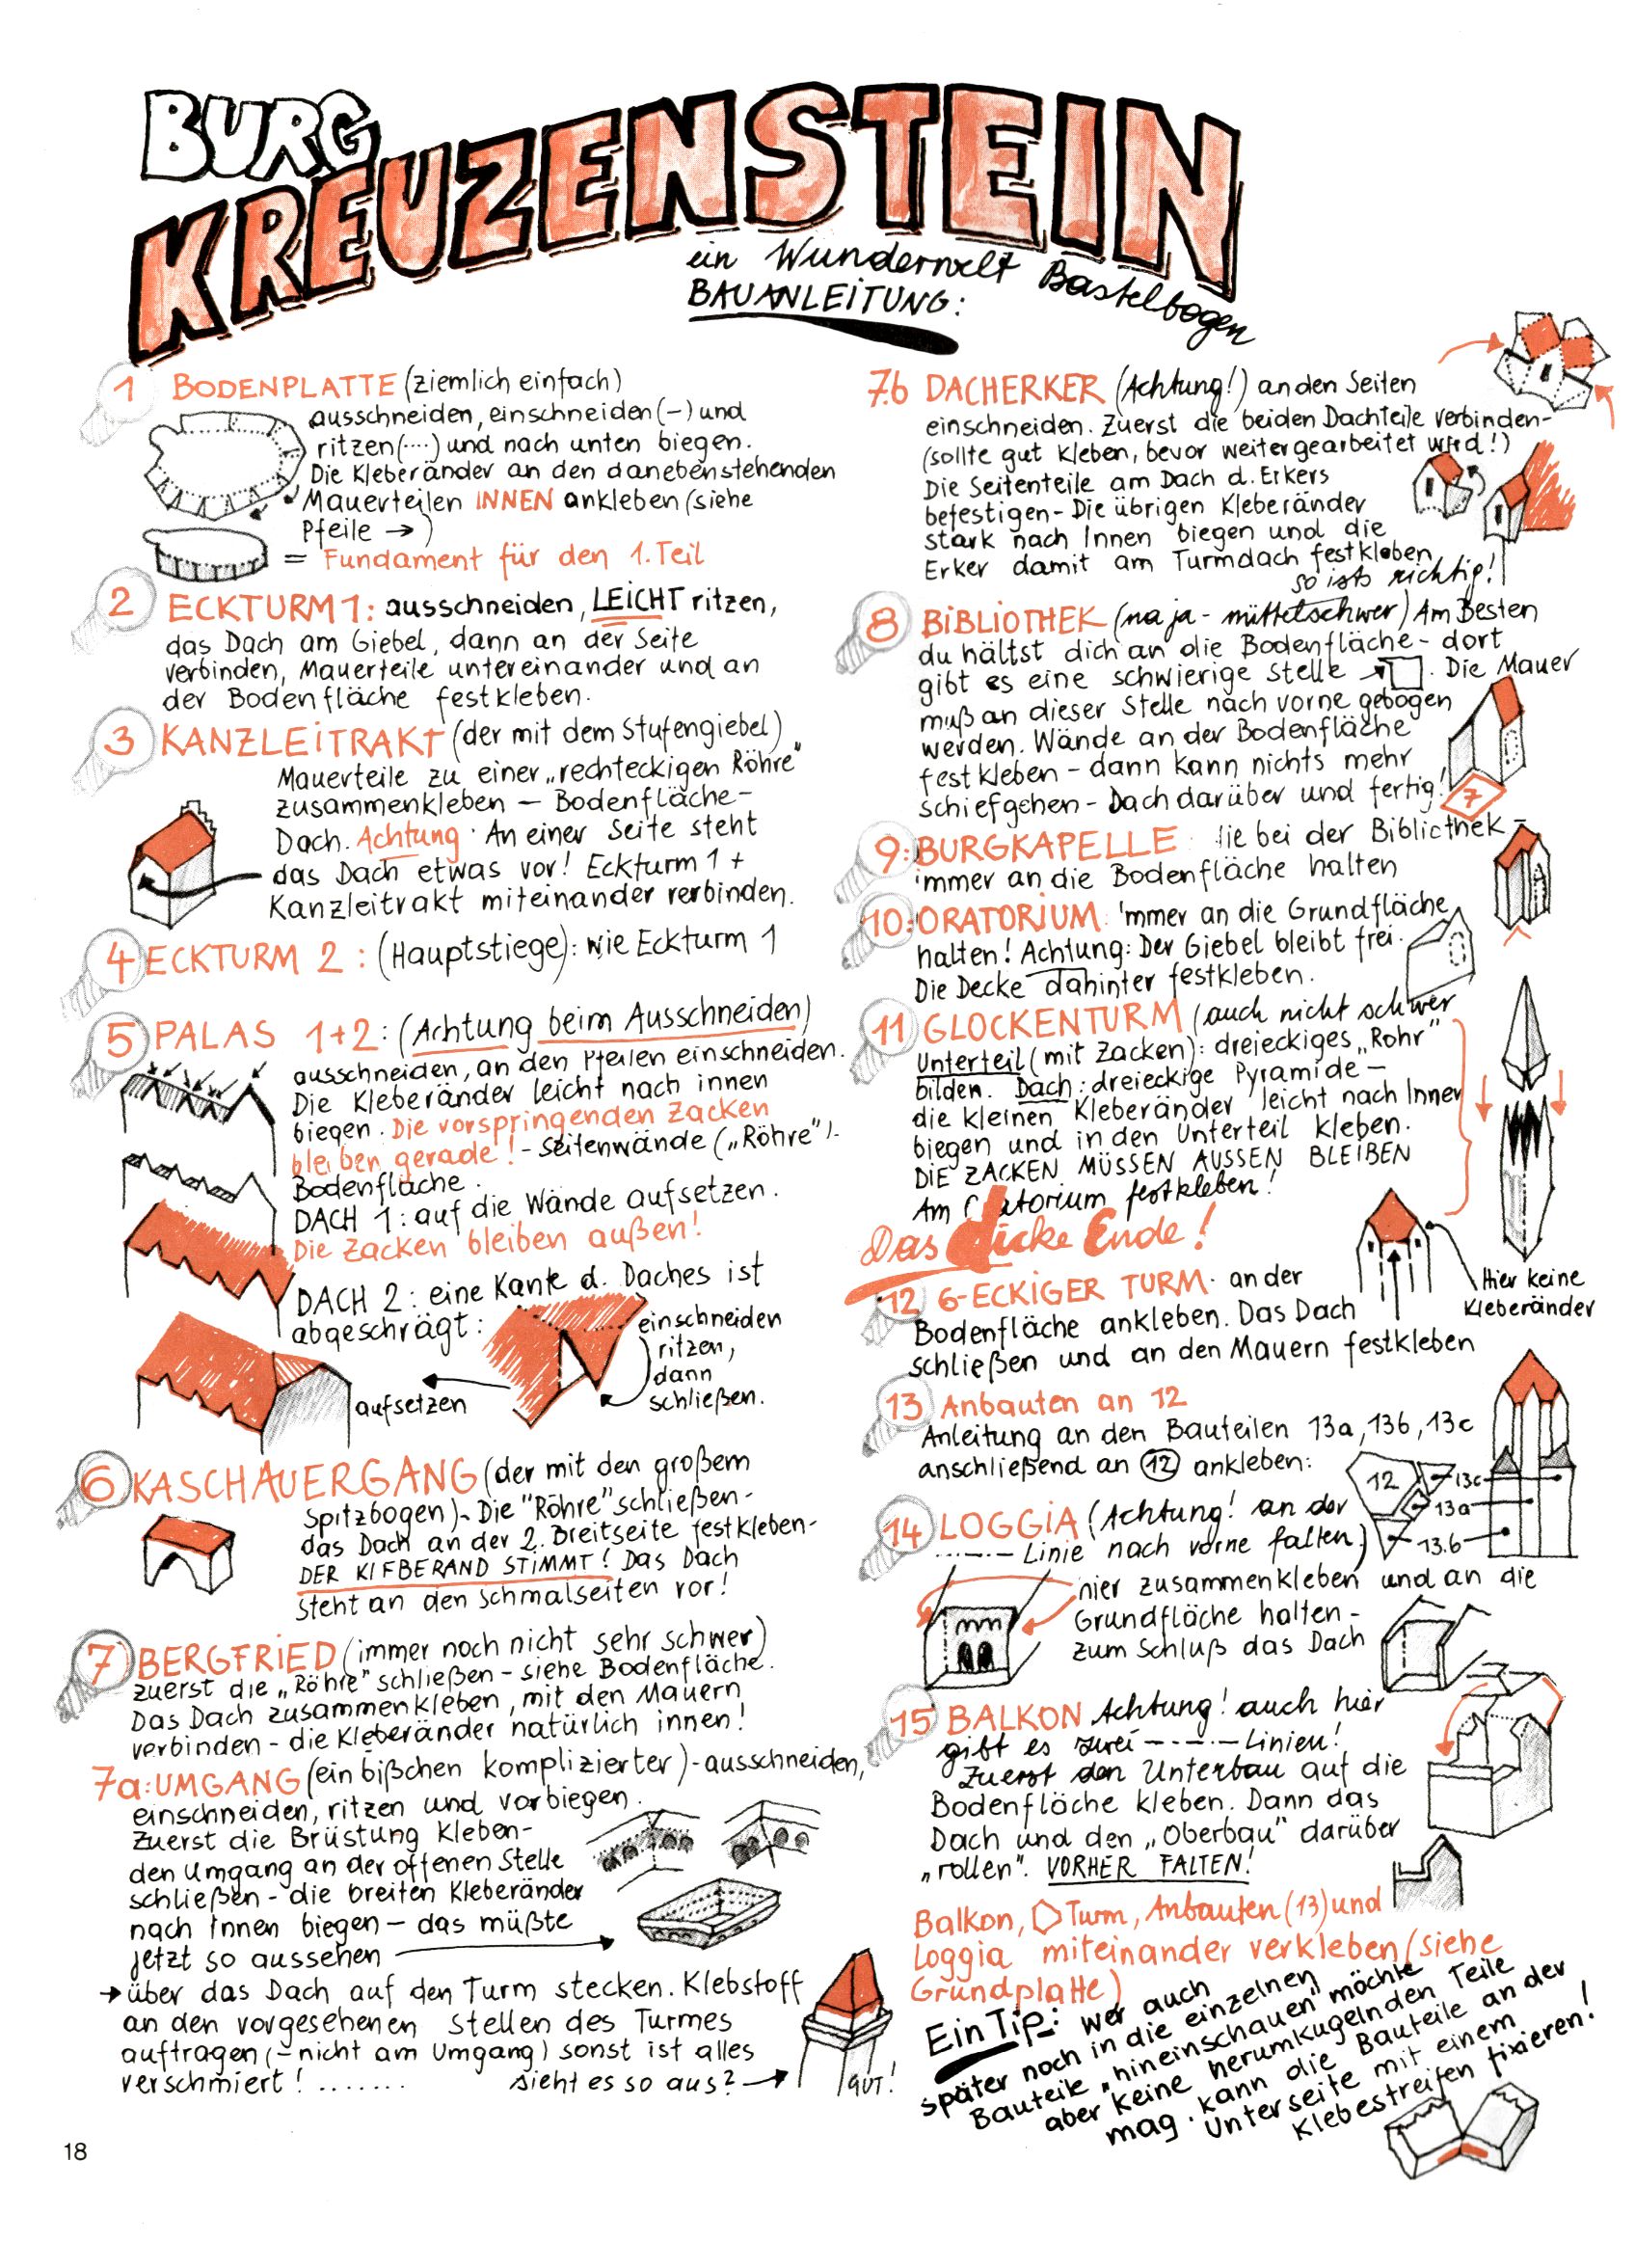 BURG
KREUZENSTEIN
ein Wunderwelt Bastelbogen
BAUANLEITUNG:
1 BODENPLATTE (ziemlich einfach)
ausschneiden, einschneiden (–) und
ritzen (····) und nach unten biegen.
Die Kleberänder an den danebenstehenden
Mauerteilen INNEN ankleben (siehe
Pfeile →)
= Fundament für den 1. Teil
2 ECKTURM 1: ausschneiden, LEICHT ritzen,
das Dach am Giebel, dann an der Seite
verbinden, Mauerteile untereinander und an
der Bodenfläche festkleben.
3 KANZLEITRAKT (der mit dem Stufengiebel)
Mauerteile zu einer „rechteckigen Röhre"
zusammenkleben – Bodenfläche –
Dach. Achtung · An einer Seite steht
das Dach etwas vor! Eckturm 1 +
Kanzleitrakt miteinander verbinden.
4 ECKTURM 2: (Hauptstiege): wie Eckturm 1
5 PALAS 1+2: (Achtung beim Ausschneiden)
ausschneiden, an den Pfeilen einschneiden.
Die Kleberänder leicht nach innen
biegen. Die vorspringenden Zacken
bleiben gerade! – Seitenwände („Röhre") –
Bodenfläche.
DACH 1: auf die Wände aufsetzen.
Die Zacken bleiben außen!
DACH 2: eine Kante d. Daches ist
abgeschrägt:
einschneiden
ritzen,
dann
schließen.
aufsetzen
6 KASCHAUERGANG (der mit den großem
Spitzbogen) – Die "Röhre" schließen –
das Dach an der 2. Breitseite festkleben –
DER KLEBERAND STIMMT! Das Dach
steht an den Schmalseiten vor!
7 BERGFRIED (immer noch nicht sehr schwer)
zuerst die „Röhre" schließen – siehe Bodenfläche.
Das Dach zusammenkleben, mit den Mauern
verbinden – die Kleberänder natürlich innen!
7a: UMGANG (ein bißchen komplizierter) – ausschneiden,
einschneiden, ritzen und vorbiegen.
Zuerst die Brüstung Kleben –
den Umgang an der offenen Stelle
schließen – die breiten Kleberänder
nach Innen biegen – das müßte
jetzt so aussehen
→ über das Dach auf den Turm stecken. Klebstoff
an den vorgesehenen Stellen des Turmes
auftragen (– nicht am Umgang) sonst ist alles
verschmiert! .......
sieht es so aus? →
GUT!
18
7.b DACHERKER (Achtung!) an den Seiten
einschneiden. Zuerst die beiden Dachteile verbinden –
(sollte gut kleben, bevor weitergearbeitet wird!)
Die Seitenteile am Dach d. Erkers
befestigen – Die übrigen Kleberänder
stark nach Innen biegen und die
Erker damit am Turmdach festkleben
so ists richtig!
8 BIBLIOTHEK (na ja – mittelschwer) Am Besten
du hältst dich an die Bodenfläche – dort
gibt es eine schwierige Stelle → . Die Mauer
muß an dieser Stelle nach vorne gebogen
werden. Wände an der Bodenfläche
festkleben – dann kann nichts mehr
schiefgehen – Dach darüber und fertig!
7
9: BURGKAPELLE: Wie bei der Bibliothek –
immer an die Bodenfläche halten
10: ORATORIUM: Immer an die Grundfläche
halten! Achtung: Der Giebel bleibt frei.
Die Decke dahinter festkleben.
11 GLOCKENTURM (auch nicht schwer
Unterteil (mit Zacken): dreieckiges „Rohr"
bilden. Dach: dreieckige Pyramide –
die kleinen Kleberänder leicht nach Innen
biegen und in den Unterteil kleben.
DIE ZACKEN MÜSSEN AUSSEN BLEIBEN
Am Oratorium festkleben!
Das dicke Ende!
12 6-ECKIGER TURM · an der
Bodenfläche ankleben. Das Dach
schließen und an den Mauern festkleben
Hier keine
Kleberänder
13 Anbauten an 12
Anleitung an den Bauteilen 13a, 13b, 13c
anschließend an 12 ankleben:
12
13c
13a
13.b
14 LOGGIA (Achtung! an der
–·–·–·– Linie nach vorne falten.)
hier zusammenkleben und an die
Grundfläche halten –
zum Schluß das Dach
15 BALKON Achtung! auch hier
gibt es zwei –·–·– Linien!
Zuerst den Unterbau auf die
Bodenfläche kleben. Dann das
Dach und den „Oberbau" darüber
„rollen". VORHER FALTEN!
Balkon, Turm, Anbauten (13) und
Loggia miteinander verkleben (siehe
Grundplatte)
Ein Tip: wer auch
später noch in die einzelnen
Bauteile „hineinschauen" möchte
aber keine herumkugelnden Teile
mag · kann die Bauteile an der
Unterseite mit einem
Klebestreifen fixieren!